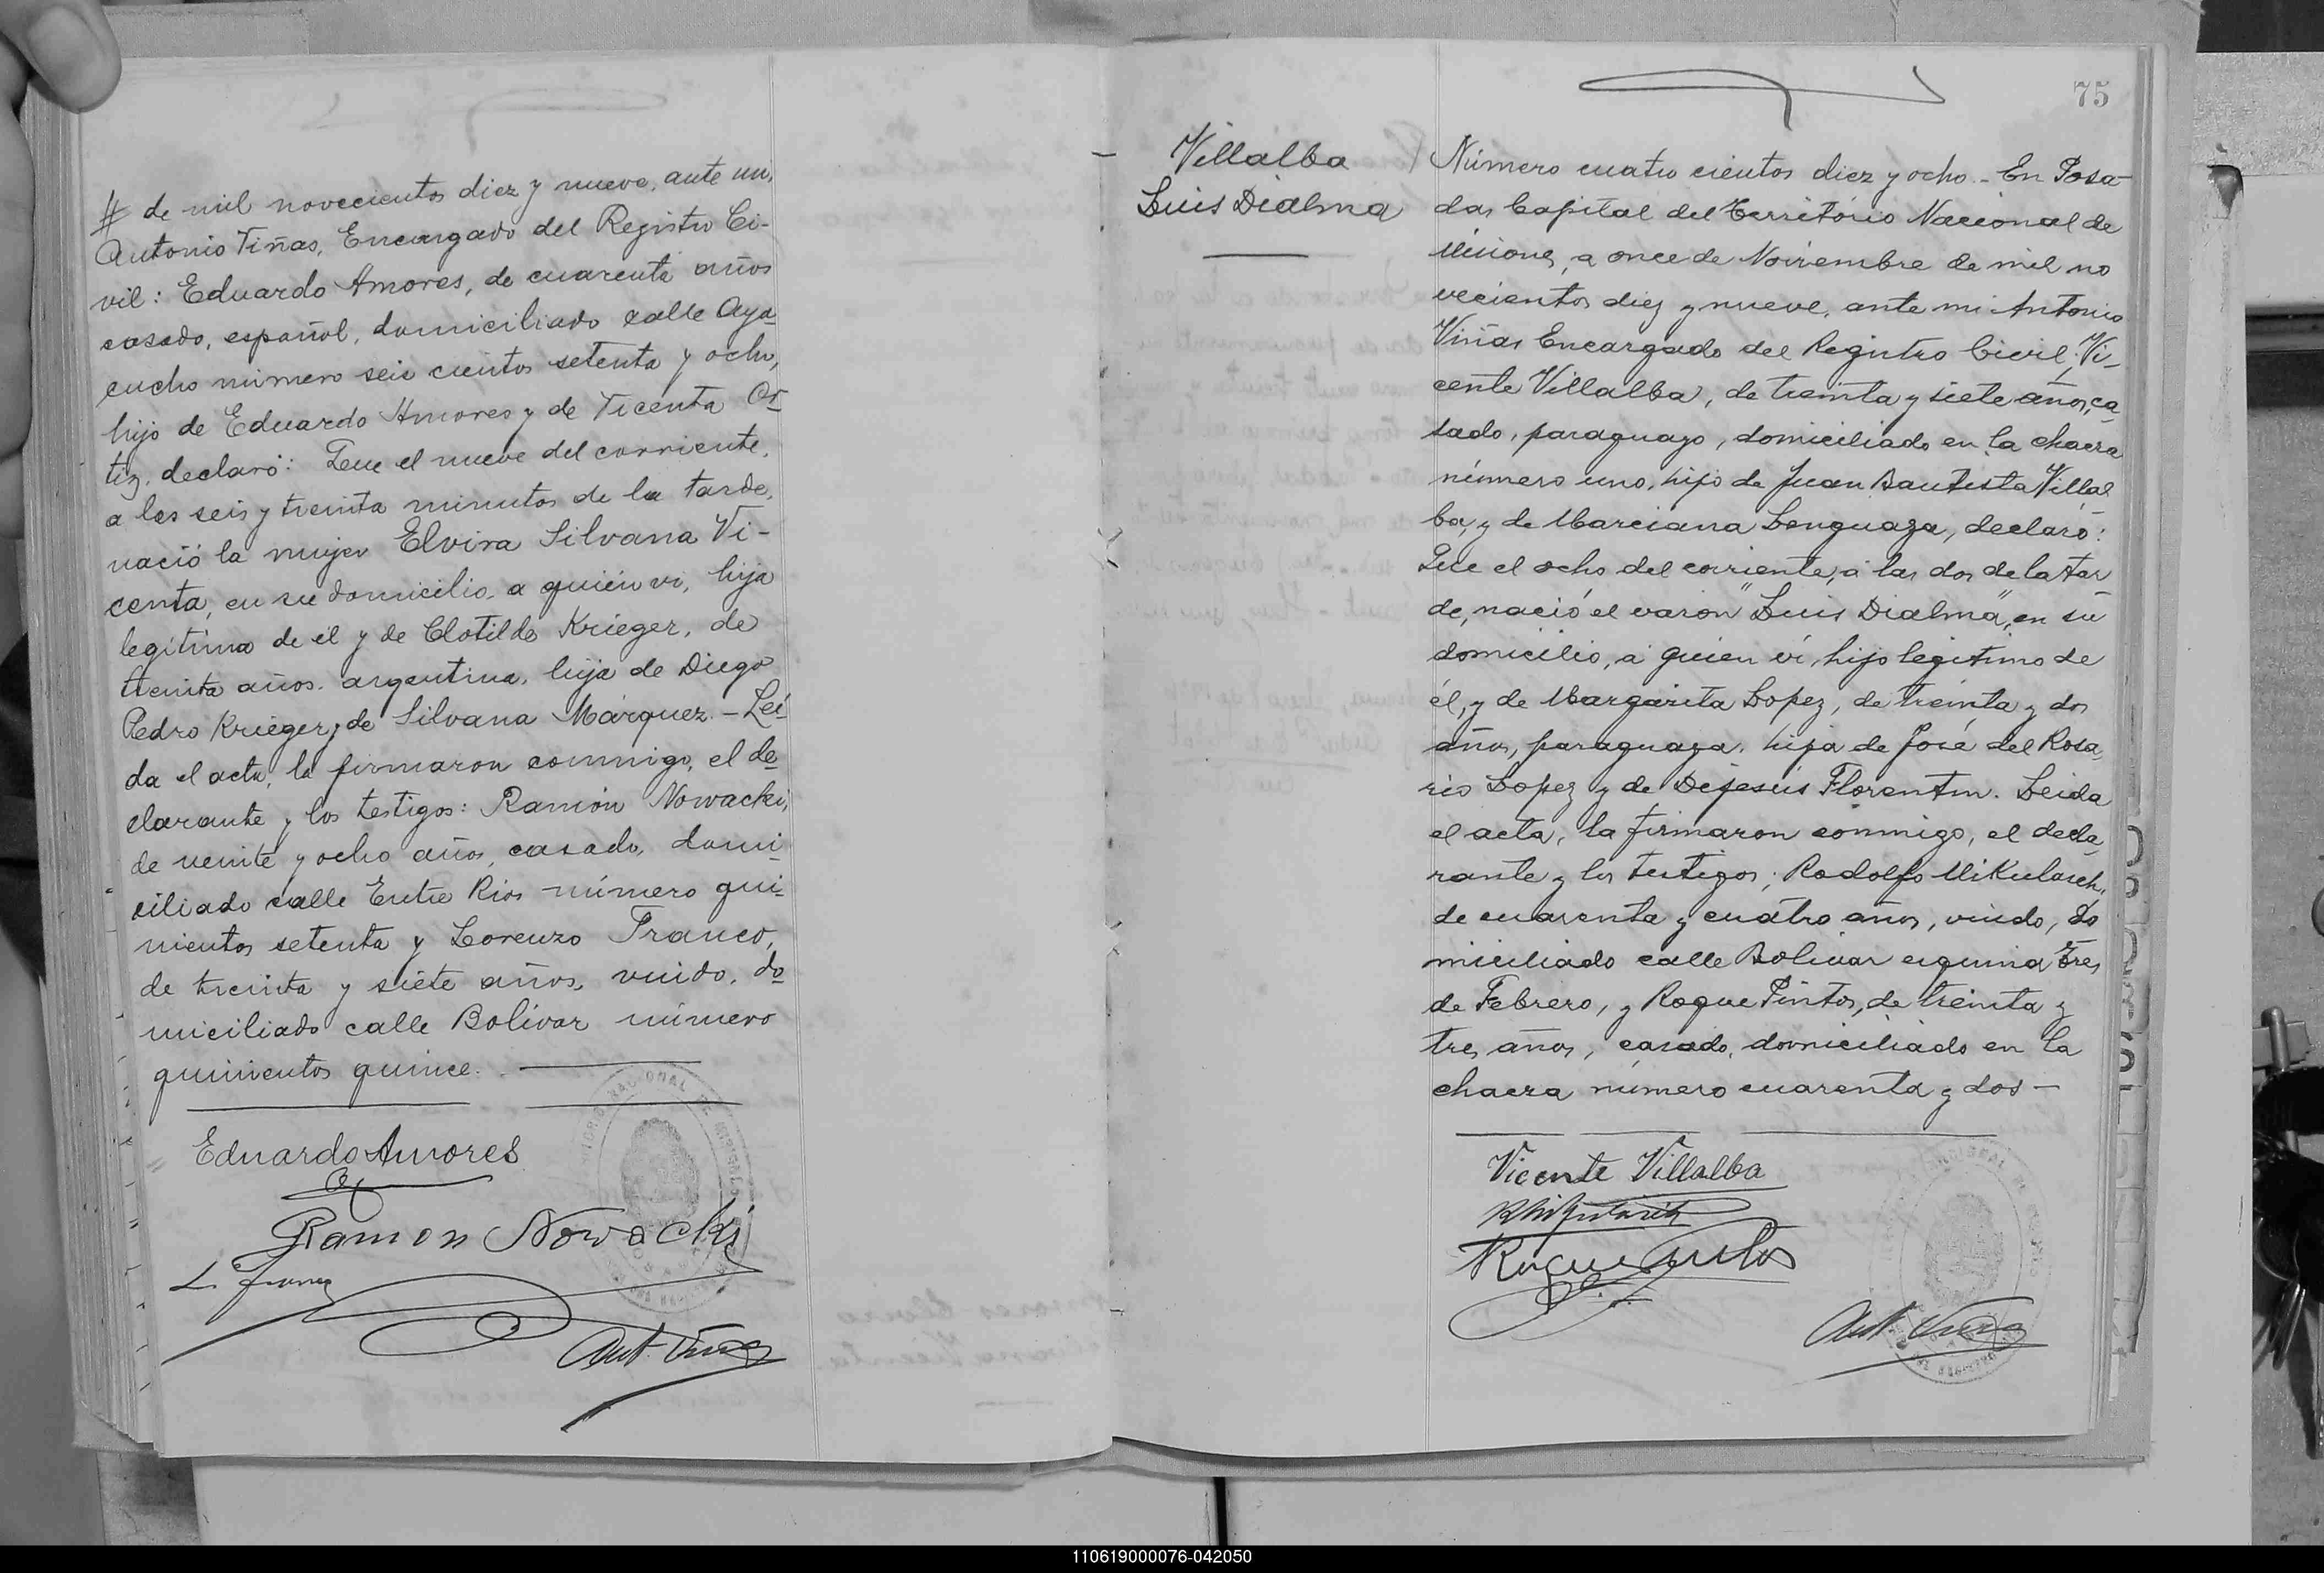 # de mil novecientos diez y nueve, ante mi,
Antonio Viñas, Encargado del Registro Ci-
vil: Eduardo Amores, de cuarenta años
casado, español, domiciliado calle Aya-
cucho número seis cientos setenta y ocho,
hijo de Eduardo Amores y de Vicenta Or-
tiz, declaró: Que el nueve del corriente,
a las seis y treinta minutos de la tarde,
nació la mujer Elvira Silvana Vi-
centa, en su domicilio, a quién vi, hija
legítima de él y de Clotilde Krieger, de
treinta años, argentina, hija de Diego
Pedro Krieger y de Silvana Márquez. - Leí-
da el acta, la firmaron conmigo, el de-
clarante y los testigos: Ramón Nowacki,
de veinte y ocho años, casado, domi-
ciliado calle Entre Rios número qui-
nientos setenta y Lorenzo Franco,
de treinta y siete años, viudo, do-
miciliado calle Bolívar número
quinientos quince.
Eduardo Amores
Ramon Nowacki
L. Franco
Ant. Viñas
75
Villalba
Luis Dialma
Número cuatro cientos diez y ocho. - En Posa-
das Capital del Territorio Nacional de
Misiones, a once de Noviembre de mil no
vecientos diez y nueve, ante mi Antonio
Viñas Encargado del Registro Civil; Vi-
cente Villalba, de treinta y siete años, ca
sado, paraguayo, domiciliado en la chacra
número uno, hijo de Juan Bautista Villal
ba, y de Marciana Lenguaza, declaró:
Que el ocho del corriente, a las dos de la tar
de, nació el varon "Luis Dialma", en su
domicilio, a quien ví, hijo legítimo de
él, y de Margarita Lopez, de treinta y dos
años, paraguaya, hija de José del Rosa-
rio Lopez y de Dejesús Florentin. Leida
el acta, la firmaron conmigo, el decla-
rante y los testigos; Rodolfo Mikulasch,
de cuarenta y cuatro años, viudo, do
miciliado calle Bolivar esquina tres
de Febrero, y Roque Pintos, de treinta y
tres años, casado, domiciliado en la
chacra número cuarenta y dos -
Vicente Villalba
Roque Pintos
Ant. Viñas
110619000076-042050